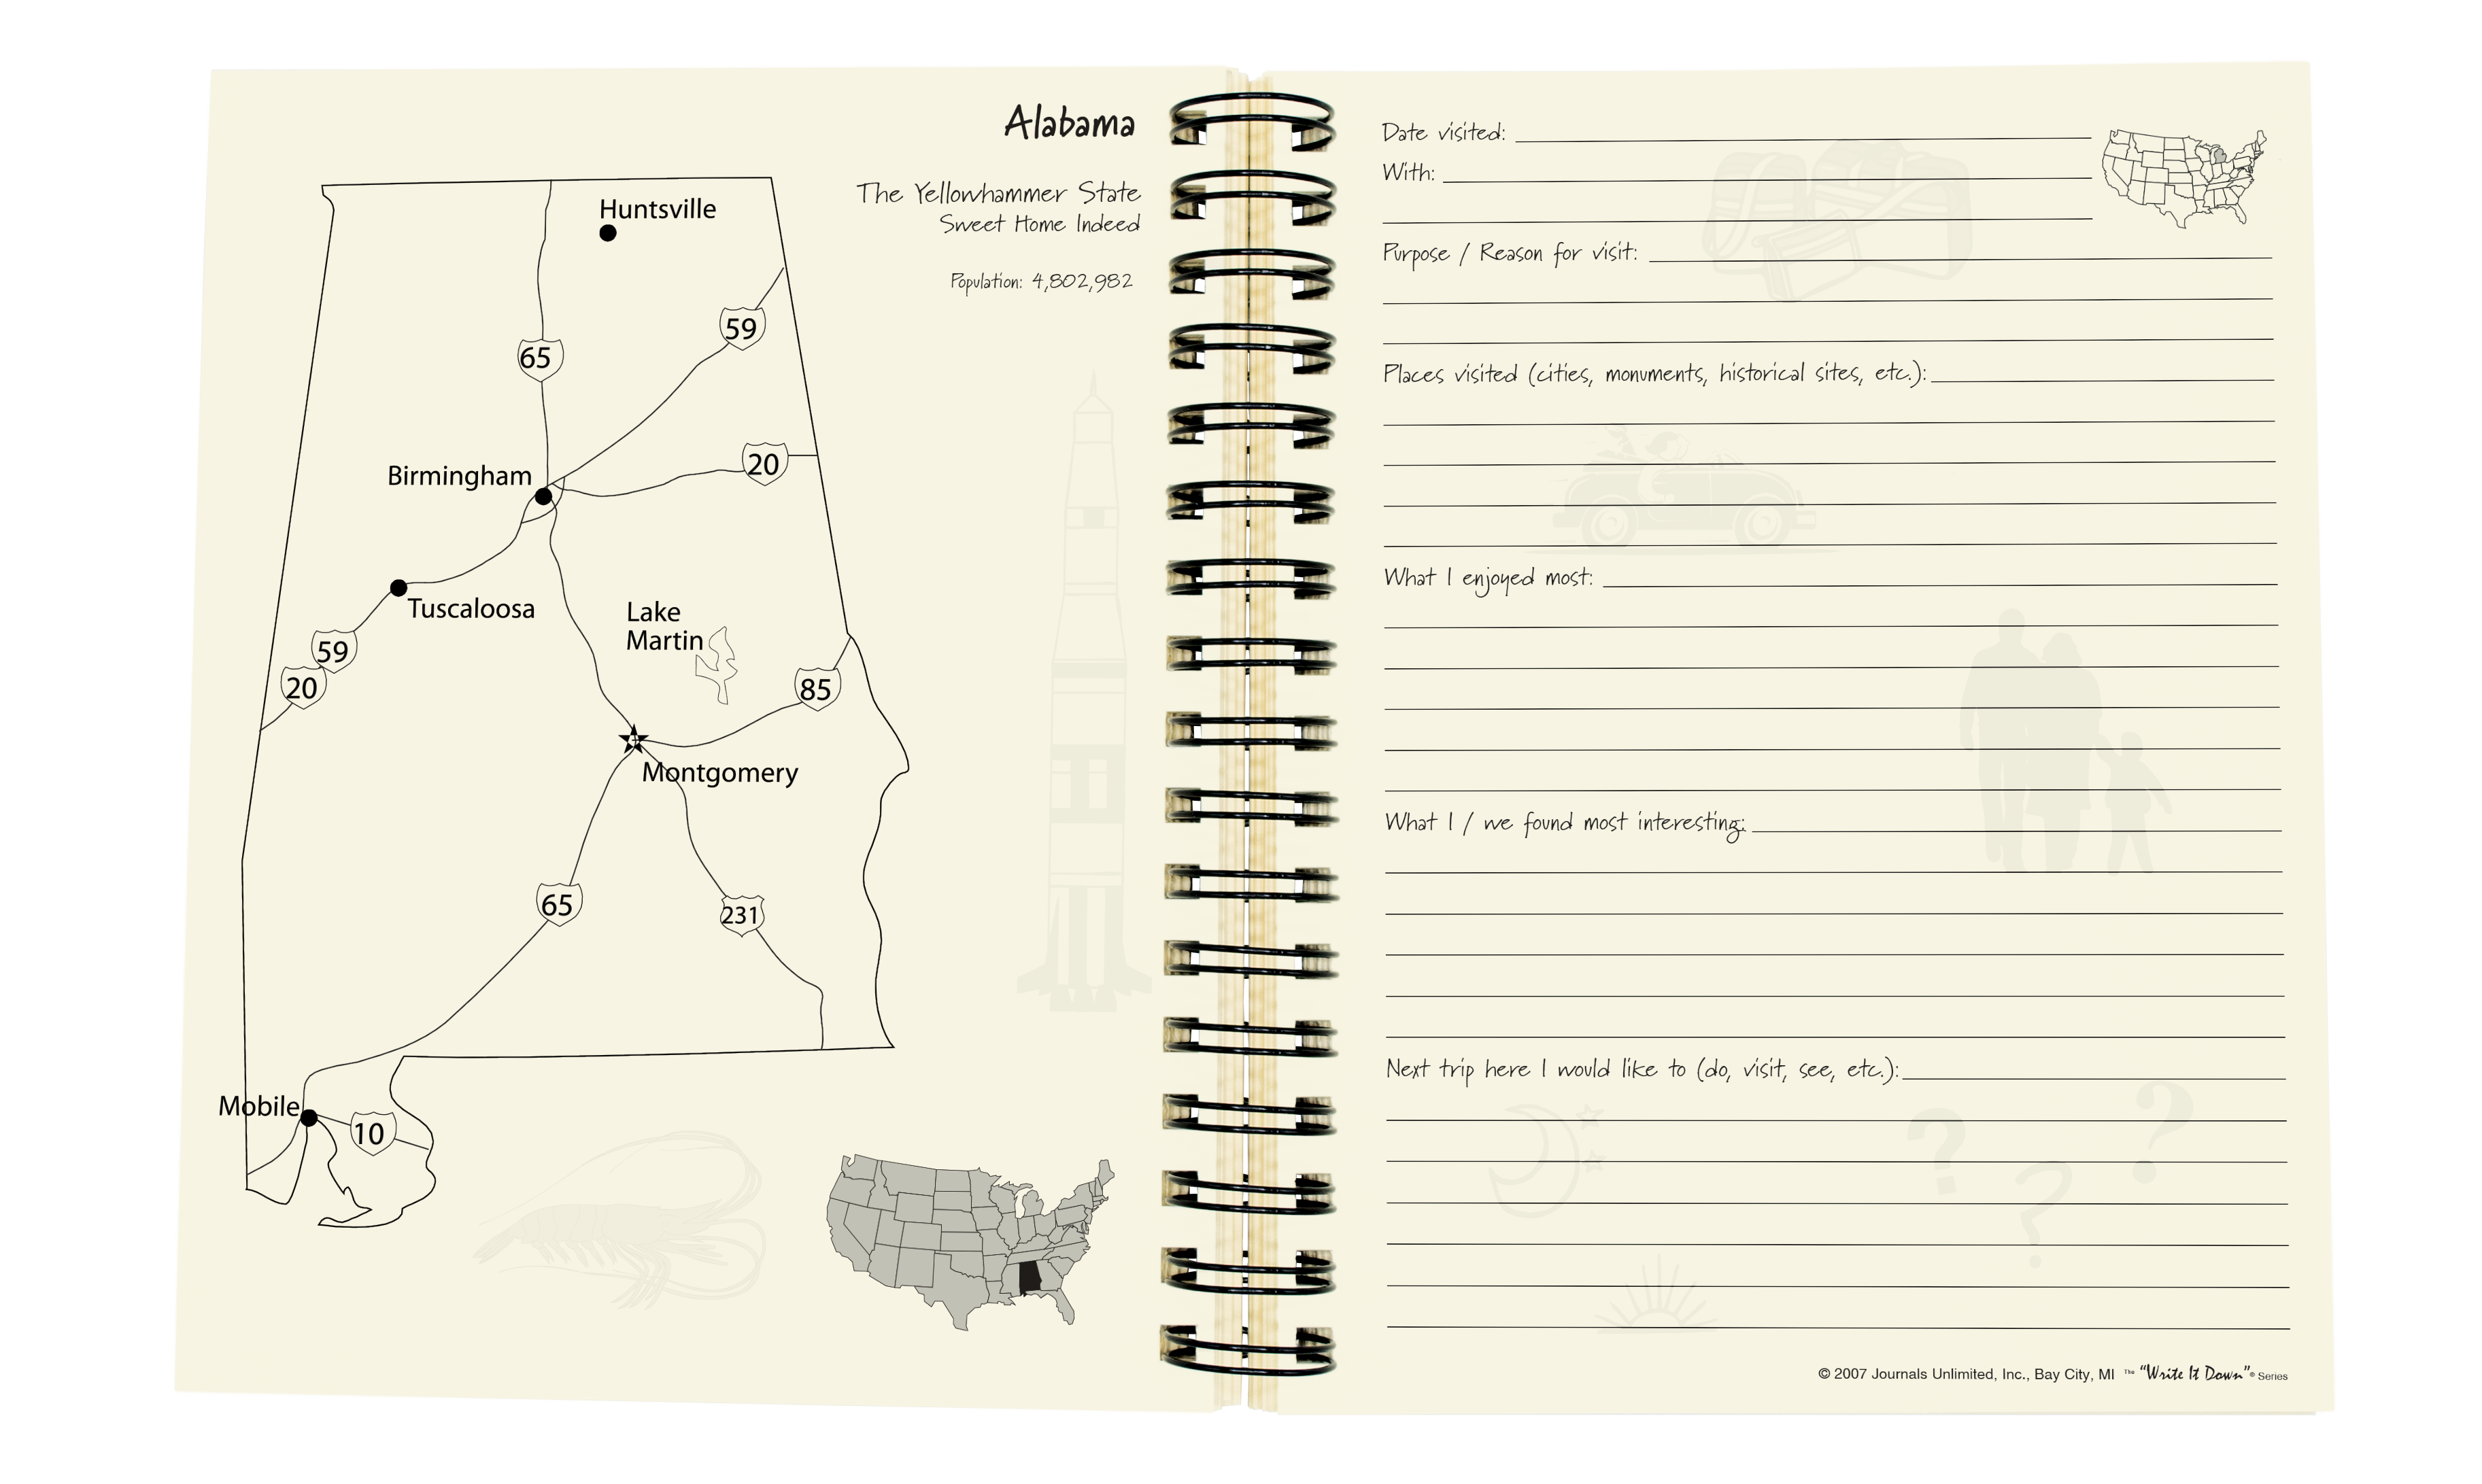 Alabama
The Yellowhammer State
Sweet Home Indeed
Population: 4,802,982
Huntsville
59
65
20
Birmingham
Tuscaloosa
Lake
Martin
59
20
85
Montgomery
65
231
Mobile
10
Date visited:
With:
Purpose / Reason for visit:
Places visited (cities, monuments, historical sites, etc.):
What I enjoyed most:
What I / we found most interesting:
Next trip here I would like to (do, visit, see, etc.):
? ? ?
© 2007 Journals Unlimited, Inc., Bay City, MI The "Write It Down"® Series